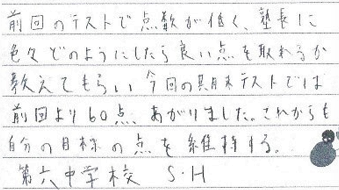 前回のテストで点数が低く、塾長に
色々どのようにしたら良い点を取れるか
教えてもらい今回の期末テストでは
前回より60点、あがりました。これからも
自分の目標の点を維持する。
第六中学校 S・H